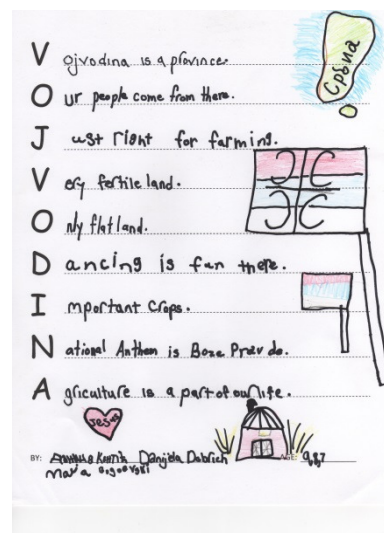 Vojvodina is a province.
Србија
Our people come from there.
Just right for farming.
Very fertile land.
Only flat land.
Dancing is fun there.
Important Crops.
National Anthem is Boze Pravdo.
Agriculture is a part of our life.
Jesus
BY: Danijela Dobrich AGE: 9,8,7
Maria